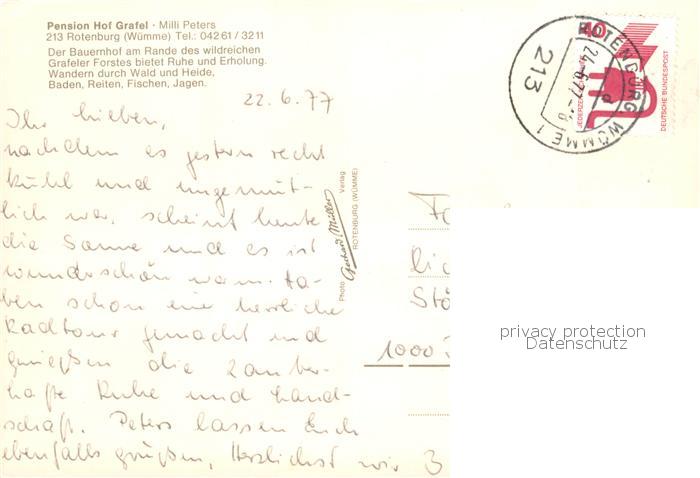 Pension Hof Grafel · Milli Peters
213 Rotenburg (Wümme) Tel.: 04261/3211
Der Bauernhof am Rande des wildreichen
Grafeler Forstes bietet Ruhe und Erholung.
Wandern durch Wald und Heide,
Baden, Reiten, Fischen, Jagen.
22.6.77
Ihr Lieben,
nachdem es gestern recht
kühl und ungemüt-
lich war, scheint heute
die Sonne und es ist
wunderschön warm. Ha-
ben schon eine herrliche
Radtour gemacht und
genießen die zauber-
hafte Ruhe und Land-
schaft. Peters lassen Euch
ebenfalls grüßen, Herzlichst wir 3
Photo Gerhard Müller Verlag
ROTENBURG (WÜMME)
ROTENBURG, WÜMME 1
213
40
DEUTSCHE BUNDESPOST
Fa
lic
Stö
1000
privacy protection
Datenschutz